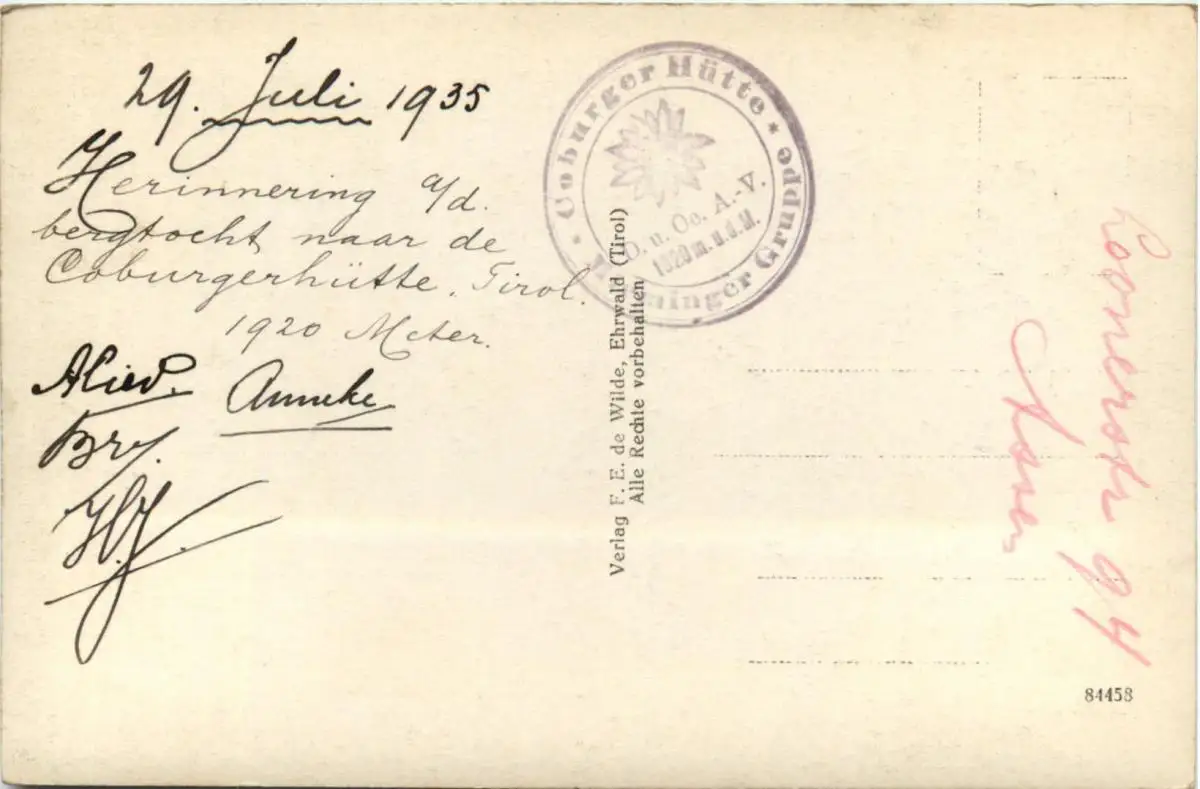 29. Juli 1935
Herinnering a/d.
bergtocht naar de
Coburgerhütte. Tirol.
1920 Meter.
Anneke
Bry.
H.J.
Coburger Hütte
D. u. Oe. A.-V.
1920 m. ü. d. M.
Mieminger Gruppe
Verlag F. E. de Wilde, Ehrwald (Tirol)
Alle Rechte vorbehalten
94
84458